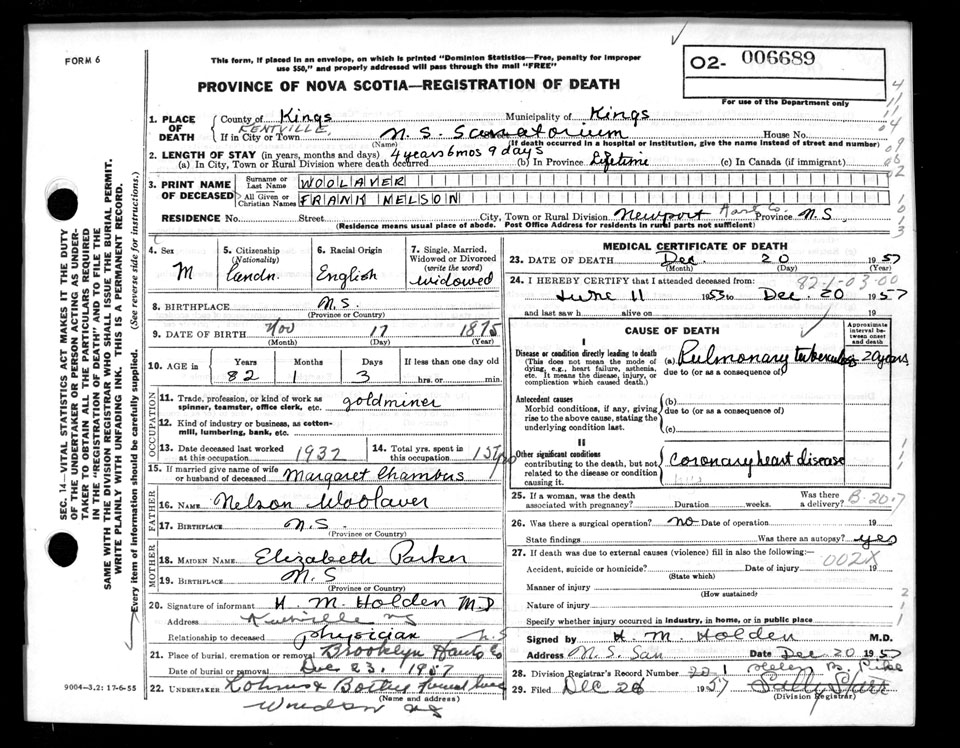 FORM 6
This form, if placed in an envelope, on which is printed "Dominion Statistics—Free, penalty for improper
use $50," and properly addressed will pass through the mail "FREE"
O2- 006689
PROVINCE OF NOVA SCOTIA—REGISTRATION OF DEATH
For use of the Department only
1. PLACE OF DEATH
County of Kings Municipality of Kings
KENTVILLE,
If in City or Town N. S. Sanatorium House No.
(Name) (If death occurred in a hospital or institution, give the name instead of street and number)
2. LENGTH OF STAY (in years, months and days) 4 years 6 mos 9 days
(a) In City, Town or Rural Division where death occurred (b) In Province Lifetime (c) In Canada (if immigrant)
3. PRINT NAME OF DECEASED
Surname or Last Name WOOLAVER
All Given or Christian Names FRANK NELSON
RESIDENCE No. Street City, Town or Rural Division Newport Hants Co. Province N. S
(Residence means usual place of abode. Post Office Address for residents in rural parts not sufficient)
4. Sex M
5. Citizenship (Nationality) Candn.
6. Racial Origin English
7. Single, Married, Widowed or Divorced (write the word) widowed
8. BIRTHPLACE N.S.
(Province or Country)
9. DATE OF BIRTH Nov 17 1875
(Month) (Day) (Year)
10. AGE in Years Months Days If less than one day old
82 1 3 hrs. or min.
OCCUPATION
11. Trade, profession, or kind of work as spinner, teamster, office clerk, etc. goldminer
12. Kind of industry or business, as cotton-mill, lumbering, bank, etc.
13. Date deceased last worked at this occupation 1932
14. Total yrs. spent in this occupation 15 yrs
15. If married give name of wife or husband of deceased Margaret Chambers
FATHER
16. NAME Nelson Woolaver
17. BIRTHPLACE N.S.
(Province or Country)
MOTHER
18. MAIDEN NAME Elizabeth Parker
19. BIRTHPLACE N.S
(Province or Country)
20. Signature of informant H. M. Holden M.D
Address Kentville NS
Relationship to deceased physician
N.S
21. Place of burial, cremation or removal Brooklyn Hants Co
Date of burial or removal Dec 23, 1957
22. UNDERTAKER
(Name and address)
Windsor NS
9004-3.2: 17-6-55
MEDICAL CERTIFICATE OF DEATH
23. DATE OF DEATH Dec. 20 1957
(Month) (Day) (Year)
24. I HEREBY CERTIFY that I attended deceased from:
82-1-03-00
June 11 1953 to Dec. 20 1957
and last saw h alive on 19
CAUSE OF DEATH
Approximate interval between onset and death
I
Disease or condition directly leading to death
(This does not mean the mode of dying, e.g., heart failure, asthenia, etc. It means the disease, injury, or complication which caused death.)
(a) Pulmonary tuberculosis 20 years
due to (or as a consequence of)
Antecedent causes
Morbid conditions, if any, giving rise to the above cause, stating the underlying condition last.
(b)
due to (or as a consequence of)
(c)
II
Other significant conditions
contributing to the death, but not related to the disease or condition causing it.
Coronary heart disease
25. If a woman, was the death associated with pregnancy? Duration weeks. Was there a delivery?
B-20-7
26. Was there a surgical operation? no Date of operation 19
State findings Was there an autopsy? yes
27. If death was due to external causes (violence) fill in also the following:—
002X
Accident, suicide or homicide? Date of injury 19
(State which)
Manner of injury
(How sustained)
Nature of injury
Specify whether injury occurred in industry, in home, or in public place
Signed by H. M. Holden M.D.
Address N. S. San Date Dec 20 1957
28. Division Registrar's Record Number 221
29. Filed Dec 26 1957
(Division Registrar)
SEC. 14—VITAL STATISTICS ACT MAKES IT THE DUTY
OF THE UNDERTAKER OR PERSON ACTING AS UNDER-
TAKER TO OBTAIN ALL THE PARTICULARS REQUIRED
IN THE "REGISTRATION OF DEATH" AND TO FILE THE
SAME WITH THE DIVISION REGISTRAR WHO SHALL ISSUE THE BURIAL PERMIT.
WRITE PLAINLY WITH UNFADING INK. THIS IS A PERMANENT RECORD.
Every item of information should be carefully supplied. (See reverse side for instructions.)